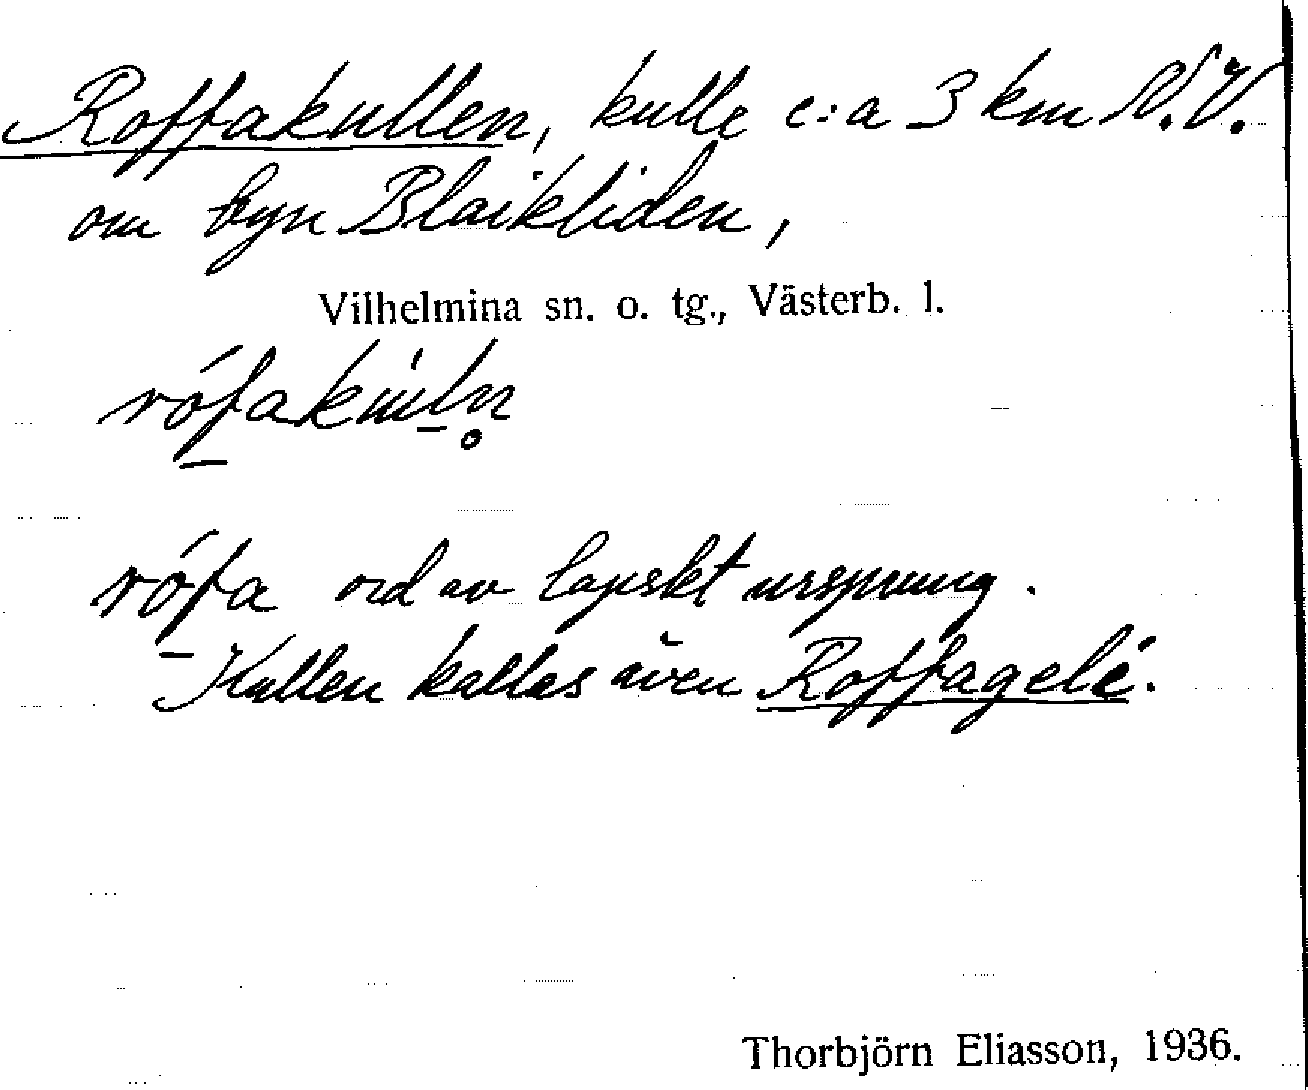 Roffakullen, kulle c:a 3 km N.V.
om byn Blaikliden,
Vilhelmina sn. o. tg., Västerb. l.
rófakul̥n̥
rófa ord av lapskt ursprung.
Kullen kallas även Roffagelé.
Thorbjörn Eliasson, 1936.